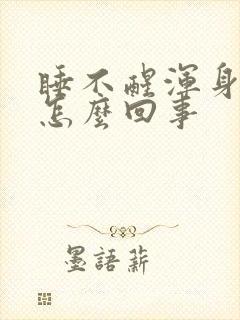 睡不醒渾身
怎麼回事
墨語薪